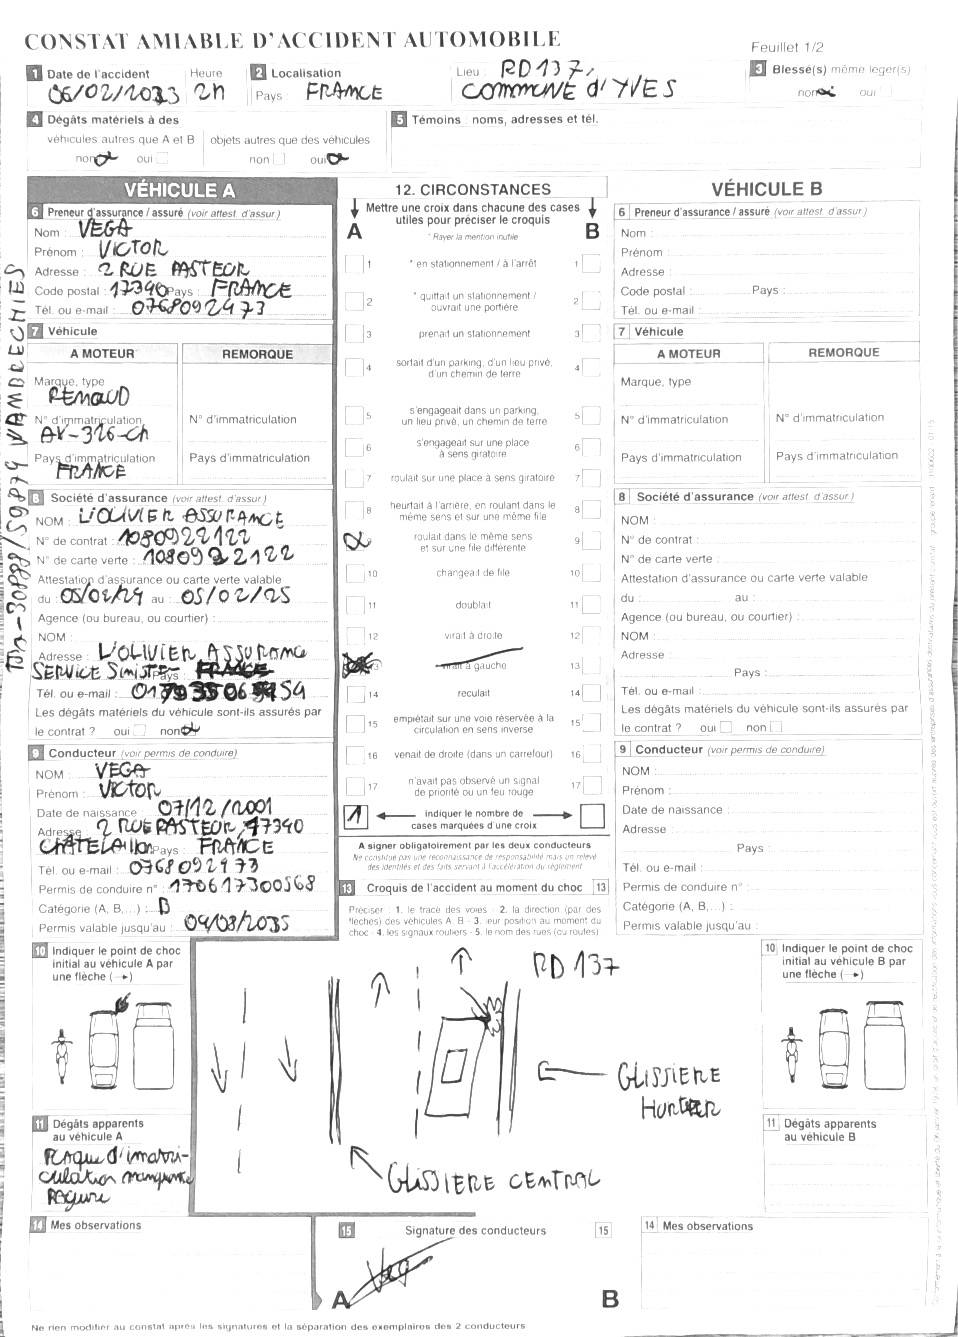 CONSTAT AMIABLE D'ACCIDENT AUTOMOBILE
Feuillet 1/2
1 Date de l'accident Heure
06/02/2033 2h
2 Localisation
Pays : FRANCE
Lieu : RD137,
COMMUNE d'YVES
3 Blessé(s) même léger(s)
non oui
4 Dégâts matériels à des
véhicules autres que A et B objets autres que des véhicules
non oui non oui
5 Témoins : noms, adresses et tél.
VÉHICULE A
6 Preneur d'assurance / assuré (voir attest. d'assur.)
Nom : VEGA
Prénom : VICTOR
Adresse : 2 RUE PASTEUR
Code postal : 17340 Pays : FRANCE
Tél. ou e-mail : 0768092973
7 Véhicule
A MOTEUR REMORQUE
Marque, type
RENAUD
N° d'immatriculation N° d'immatriculation
AV-326-Ch
Pays d'immatriculation Pays d'immatriculation
FRANCE
8 Société d'assurance (voir attest. d'assur.)
NOM : L'OLIVIER ASSURANCE
N° de contrat : 1080922122
N° de carte verte : 1080922122
Attestation d'assurance ou carte verte valable
du : 05/02/24 au : 05/02/25
Agence (ou bureau, ou courtier) :
NOM :
Adresse : L'OLIVIER ASSURANCE
SERVICE Sinistre Pays : FRANCE
Tél. ou e-mail :
Les dégâts matériels du véhicule sont-ils assurés par
le contrat ? oui non
9 Conducteur (voir permis de conduire)
NOM : VEGA
Prénom : VICTOR
Date de naissance : 07/12/2001
Adresse : 2 RUE PASTEUR, 17340
CHATELAILLON Pays : FRANCE
Tél. ou e-mail : 0768092973
Permis de conduire n° : 170617300568
Catégorie (A, B,...) : B
Permis valable jusqu'au : 04/08/2035
10 Indiquer le point de choc
initial au véhicule A par
une flèche (→)
11 Dégâts apparents
au véhicule A
Plaque d'imatri-
culation manquante
Rayure
14 Mes observations
59874 WAMBRECHIES
12. CIRCONSTANCES
Mettre une croix dans chacune des cases
utiles pour préciser le croquis
A B
* Rayer la mention inutile
1 * en stationnement / à l'arrêt 1
2 * quittait un stationnement / 2
ouvrait une portière
3 prenait un stationnement 3
4 sortait d'un parking, d'un lieu privé, 4
d'un chemin de terre
5 s'engageait dans un parking, 5
un lieu privé, un chemin de terre
6 s'engageait sur une place 6
à sens giratoire
7 roulait sur une place à sens giratoire 7
8 heurtait à l'arrière, en roulant dans le 8
même sens et sur une même file
roulait dans le même sens 9
et sur une file différente
10 changeait de file 10
11 doublait 11
12 virait à droite 12
13 virait à gauche 13
14 reculait 14
15 empiétait sur une voie réservée à la 15
circulation en sens inverse
16 venait de droite (dans un carrefour) 16
17 n'avait pas observé un signal 17
de priorité ou un feu rouge
1 indiquer le nombre de
cases marquées d'une croix
A signer obligatoirement par les deux conducteurs
Ne constitue pas une reconnaissance de responsabilité mais un relevé
des identités et des faits servant à l'accélération du règlement
13 Croquis de l'accident au moment du choc 13
Préciser : 1. le tracé des voies - 2. la direction (par des
flèches) des véhicules A, B - 3. leur position au moment du
choc - 4. les signaux routiers - 5. le nom des rues (ou routes)
RD 137
GLISSIERE
GLISSIERE CENTRAL
15 Signature des conducteurs 15
A B
VÉHICULE B
6 Preneur d'assurance / assuré (voir attest. d'assur.)
Nom :
Prénom :
Adresse :
Code postal : Pays :
Tél. ou e-mail :
7 Véhicule
A MOTEUR REMORQUE
Marque, type
N° d'immatriculation N° d'immatriculation
Pays d'immatriculation Pays d'immatriculation
8 Société d'assurance (voir attest. d'assur.)
NOM :
N° de contrat :
N° de carte verte :
Attestation d'assurance ou carte verte valable
du : au :
Agence (ou bureau, ou courtier) :
NOM :
Adresse :
Pays :
Tél. ou e-mail :
Les dégâts matériels du véhicule sont-ils assurés par
le contrat ? oui non
9 Conducteur (voir permis de conduire)
NOM :
Prénom :
Date de naissance :
Adresse :
Pays :
Tél. ou e-mail :
Permis de conduire n° :
Catégorie (A, B,...) :
Permis valable jusqu'au :
10 Indiquer le point de choc
initial au véhicule B par
une flèche (→)
11 Dégâts apparents
au véhicule B
14 Mes observations
Ne rien modifier au constat après les signatures et la séparation des exemplaires des 2 conducteurs